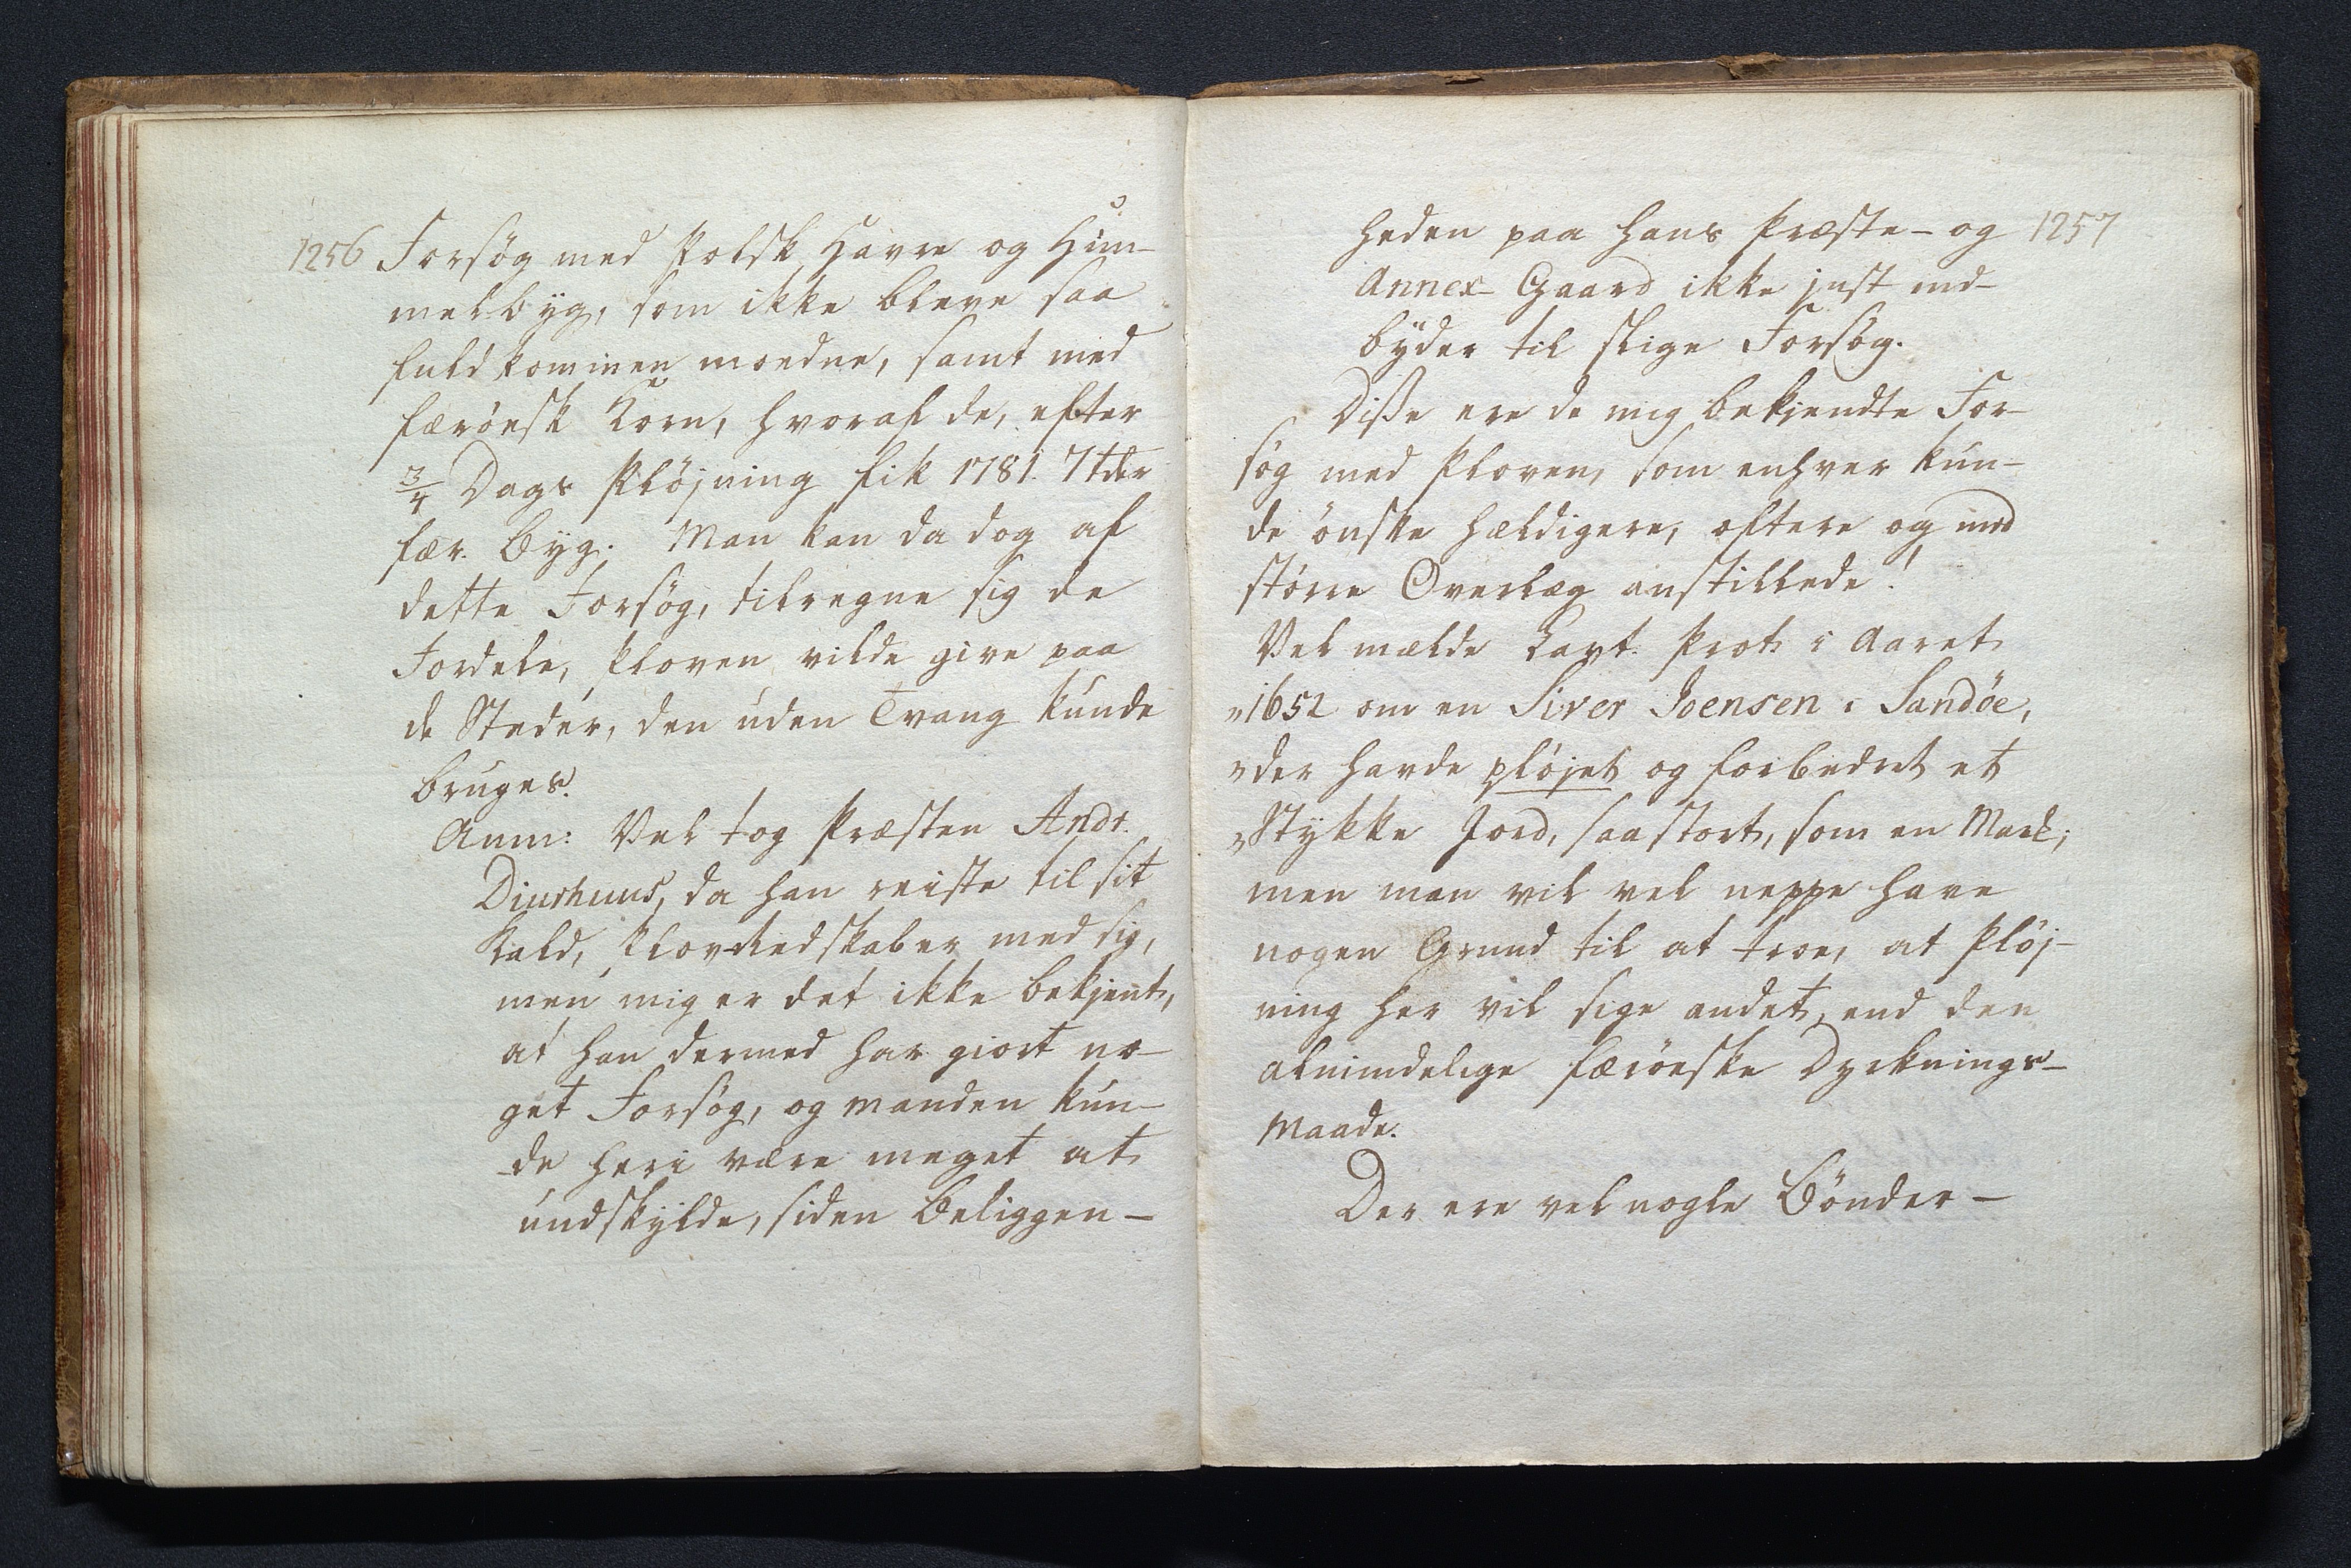 1256 Forsøg med Polsk Havre og Him-
melbyg, som ikke bleve saa
fuldkommen moedne, samt med
færöesk Korn, hvoraf de, efter
3/4 Dags Pløjning fik 1781. 7 tdr
fær. Byg. Man kan da dog af
dette Forsøg, tilregne sig de
Fordele, Ploven vilde give paa
de Steder, den uden Tvang kunde
bruges.
Anm: Vel tog Præsten Andr.
Diurhuus, da han reiste til sit
Kald, Plovredskaber med sig,
men mig er det ikke bekjent,
at han dermed har giort no-
get Forsøg, og manden kun-
de heri være meget at
undskylde, siden Beliggen-
heden paa hans Præste- og 1257
Annex-Gaard ikke just ind-
byder til slige Forsøg.
Disse ere de mig bekjendte For-
søg med Ploven, som enhver kun-
de önske heldigere, oftere og med
større Overlæg anstillede!
Vel melde Lavt. Prot. i Aaret
"1652 om en Siver Joensen i Sandöe,
"der havde pløjet og forbedret et
"Stykke Jord, saa stort, som en Mark;
men man vil vel neppe have
nogen Grund til at troe, at Pløj-
ning her vil sige andet, end den
almindelige færöeske Dyrknings-
Maade.
Der ere vel nogle Bönder-